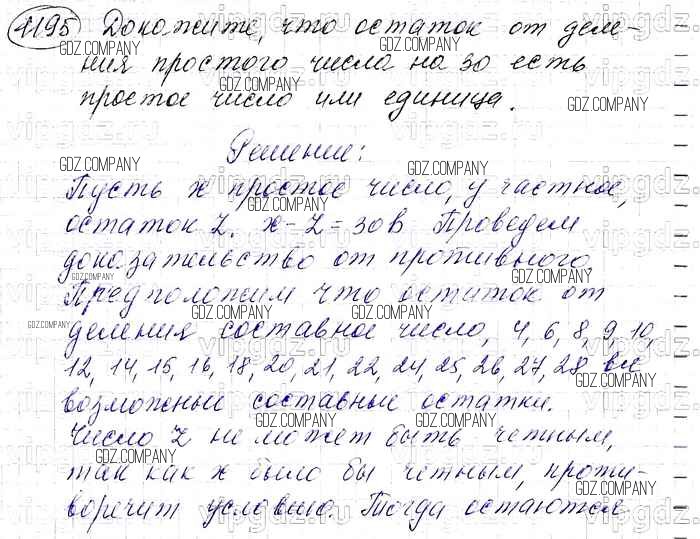 1195 Докажите, что остаток от деле-
ния простого числа на 30 есть
простое число или единица.
Решение:
Пусть x простое число, y частное,
остаток Z. x - Z = 30В Проведем
доказательство от противного
Предположим что остаток от
деления составное число, 4, 6, 8, 9, 10,
12, 14, 15, 16, 18, 20, 21, 22, 24, 25, 26, 27, 28 все
возможные составные остатки.
Число Z не может быть четным,
так как x было бы четным, проти-
воречит условию. Тогда остаются